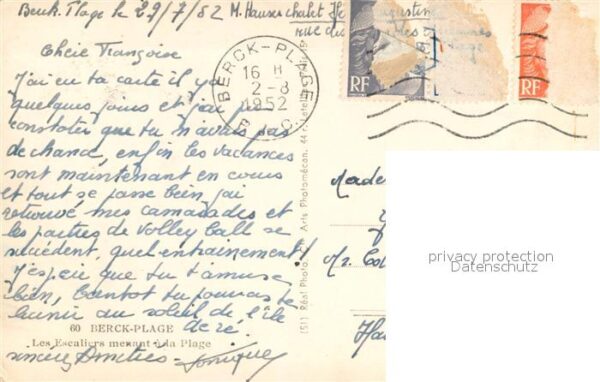 Berck. Plage le 29/7/52 M. Hauser chalet
rue du
Chère Françoise
J'ai eu ta carte il y a
quelques jours et j'ai pu
constater que tu n'avais pas
de chance, enfin les vacances
sont maintenant en cours
et tout se passe bien, j'ai
retrouvé mes camarades et
les parties de volley ball se
succèdent, quel entraînement!
J'espère que tu t'amuses
bien, bientôt tu pourras te
brunir au soleil de l'île
de ré.
sincères Amitiés
BERCK-PLAGE
16 H
2-8
1952
RF
RF
(51) Réal Photo. Arts Photomécan. 44 r. Letellier
60 BERCK-PLAGE
Les Escaliers menant à la Plage
privacy protection
Datenschutz